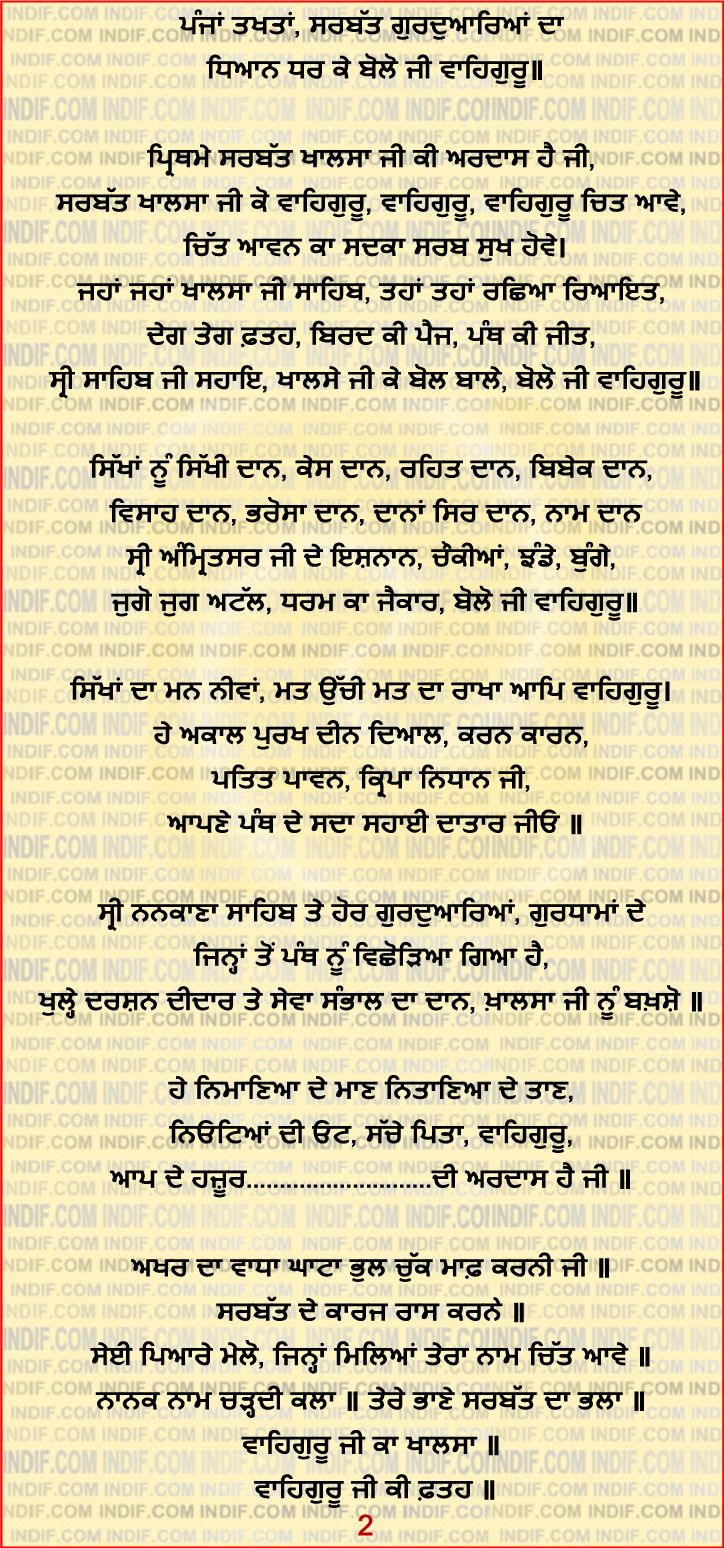 ਪੰਜਾਂ ਤਖਤਾਂ, ਸਰਬੱਤ ਗੁਰਦੁਆਰਿਆਂ ਦਾ
ਧਿਆਨ ਧਰ ਕੇ ਬੋਲੋ ਜੀ ਵਾਹਿਗੁਰੂ॥
ਪ੍ਰਿਥਮੇ ਸਰਬੱਤ ਖਾਲਸਾ ਜੀ ਕੀ ਅਰਦਾਸ ਹੈ ਜੀ,
ਸਰਬੱਤ ਖਾਲਸਾ ਜੀ ਕੋ ਵਾਹਿਗੁਰੂ, ਵਾਹਿਗੁਰੂ, ਵਾਹਿਗੁਰੂ ਚਿਤ ਆਵੇ,
ਚਿੱਤ ਆਵਨ ਕਾ ਸਦਕਾ ਸਰਬ ਸੁਖ ਹੋਵੇ।
ਜਹਾਂ ਜਹਾਂ ਖਾਲਸਾ ਜੀ ਸਾਹਿਬ, ਤਹਾਂ ਤਹਾਂ ਰਛਿਆ ਰਿਆਇਤ,
ਦੇਗ ਤੇਗ ਫ਼ਤਹ, ਬਿਰਦ ਕੀ ਪੈਜ, ਪੰਥ ਕੀ ਜੀਤ,
ਸ੍ਰੀ ਸਾਹਿਬ ਜੀ ਸਹਾਇ, ਖਾਲਸੇ ਜੀ ਕੇ ਬੋਲ ਬਾਲੇ, ਬੋਲੋ ਜੀ ਵਾਹਿਗੁਰੂ॥
ਸਿੱਖਾਂ ਨੂੰ ਸਿੱਖੀ ਦਾਨ, ਕੇਸ ਦਾਨ, ਰਹਿਤ ਦਾਨ, ਬਿਬੇਕ ਦਾਨ,
ਵਿਸਾਹ ਦਾਨ, ਭਰੋਸਾ ਦਾਨ, ਦਾਨਾਂ ਸਿਰ ਦਾਨ, ਨਾਮ ਦਾਨ
ਸ੍ਰੀ ਅੰਮ੍ਰਿਤਸਰ ਜੀ ਦੇ ਇਸ਼ਨਾਨ, ਚੌਂਕੀਆਂ, ਝੰਡੇ, ਬੁੰਗੇ,
ਜੁਗੋ ਜੁਗ ਅਟੱਲ, ਧਰਮ ਕਾ ਜੈਕਾਰ, ਬੋਲੋ ਜੀ ਵਾਹਿਗੁਰੂ॥
ਸਿੱਖਾਂ ਦਾ ਮਨ ਨੀਵਾਂ, ਮਤ ਉੱਚੀ ਮਤ ਦਾ ਰਾਖਾ ਆਪਿ ਵਾਹਿਗੁਰੂ।
ਹੇ ਅਕਾਲ ਪੁਰਖ ਦੀਨ ਦਿਆਲ, ਕਰਨ ਕਾਰਨ,
ਪਤਿਤ ਪਾਵਨ, ਕ੍ਰਿਪਾ ਨਿਧਾਨ ਜੀ,
ਆਪਣੇ ਪੰਥ ਦੇ ਸਦਾ ਸਹਾਈ ਦਾਤਾਰ ਜੀਓ ॥
ਸ੍ਰੀ ਨਨਕਾਣਾ ਸਾਹਿਬ ਤੇ ਹੋਰ ਗੁਰਦੁਆਰਿਆਂ, ਗੁਰਧਾਮਾਂ ਦੇ
ਜਿਨ੍ਹਾਂ ਤੋਂ ਪੰਥ ਨੂੰ ਵਿਛੋੜਿਆ ਗਿਆ ਹੈ,
ਖੁਲ੍ਹੇ ਦਰਸ਼ਨ ਦੀਦਾਰ ਤੇ ਸੇਵਾ ਸੰਭਾਲ ਦਾ ਦਾਨ, ਖ਼ਾਲਸਾ ਜੀ ਨੂੰ ਬਖ਼ਸ਼ੋ ॥
ਹੇ ਨਿਮਾਣਿਆ ਦੇ ਮਾਣ ਨਿਤਾਣਿਆ ਦੇ ਤਾਣ,
ਨਿਓਟਿਆਂ ਦੀ ਓਟ, ਸੱਚੇ ਪਿਤਾ, ਵਾਹਿਗੁਰੂ,
ਆਪ ਦੇ ਹਜ਼ੂਰ............................ਦੀ ਅਰਦਾਸ ਹੈ ਜੀ ॥
ਅਖਰ ਦਾ ਵਾਧਾ ਘਾਟਾ ਭੁਲ ਚੁੱਕ ਮਾਫ਼ ਕਰਨੀ ਜੀ ॥
ਸਰਬੱਤ ਦੇ ਕਾਰਜ ਰਾਸ ਕਰਨੇ ॥
ਸੇਈ ਪਿਆਰੇ ਮੇਲੋ, ਜਿਨ੍ਹਾਂ ਮਿਲਿਆਂ ਤੇਰਾ ਨਾਮ ਚਿੱਤ ਆਵੇ ॥
ਨਾਨਕ ਨਾਮ ਚੜ੍ਹਦੀ ਕਲਾ ॥ ਤੇਰੇ ਭਾਣੇ ਸਰਬੱਤ ਦਾ ਭਲਾ ॥
ਵਾਹਿਗੁਰੂ ਜੀ ਕਾ ਖਾਲਸਾ ॥
ਵਾਹਿਗੁਰੂ ਜੀ ਕੀ ਫ਼ਤਹ ॥
2